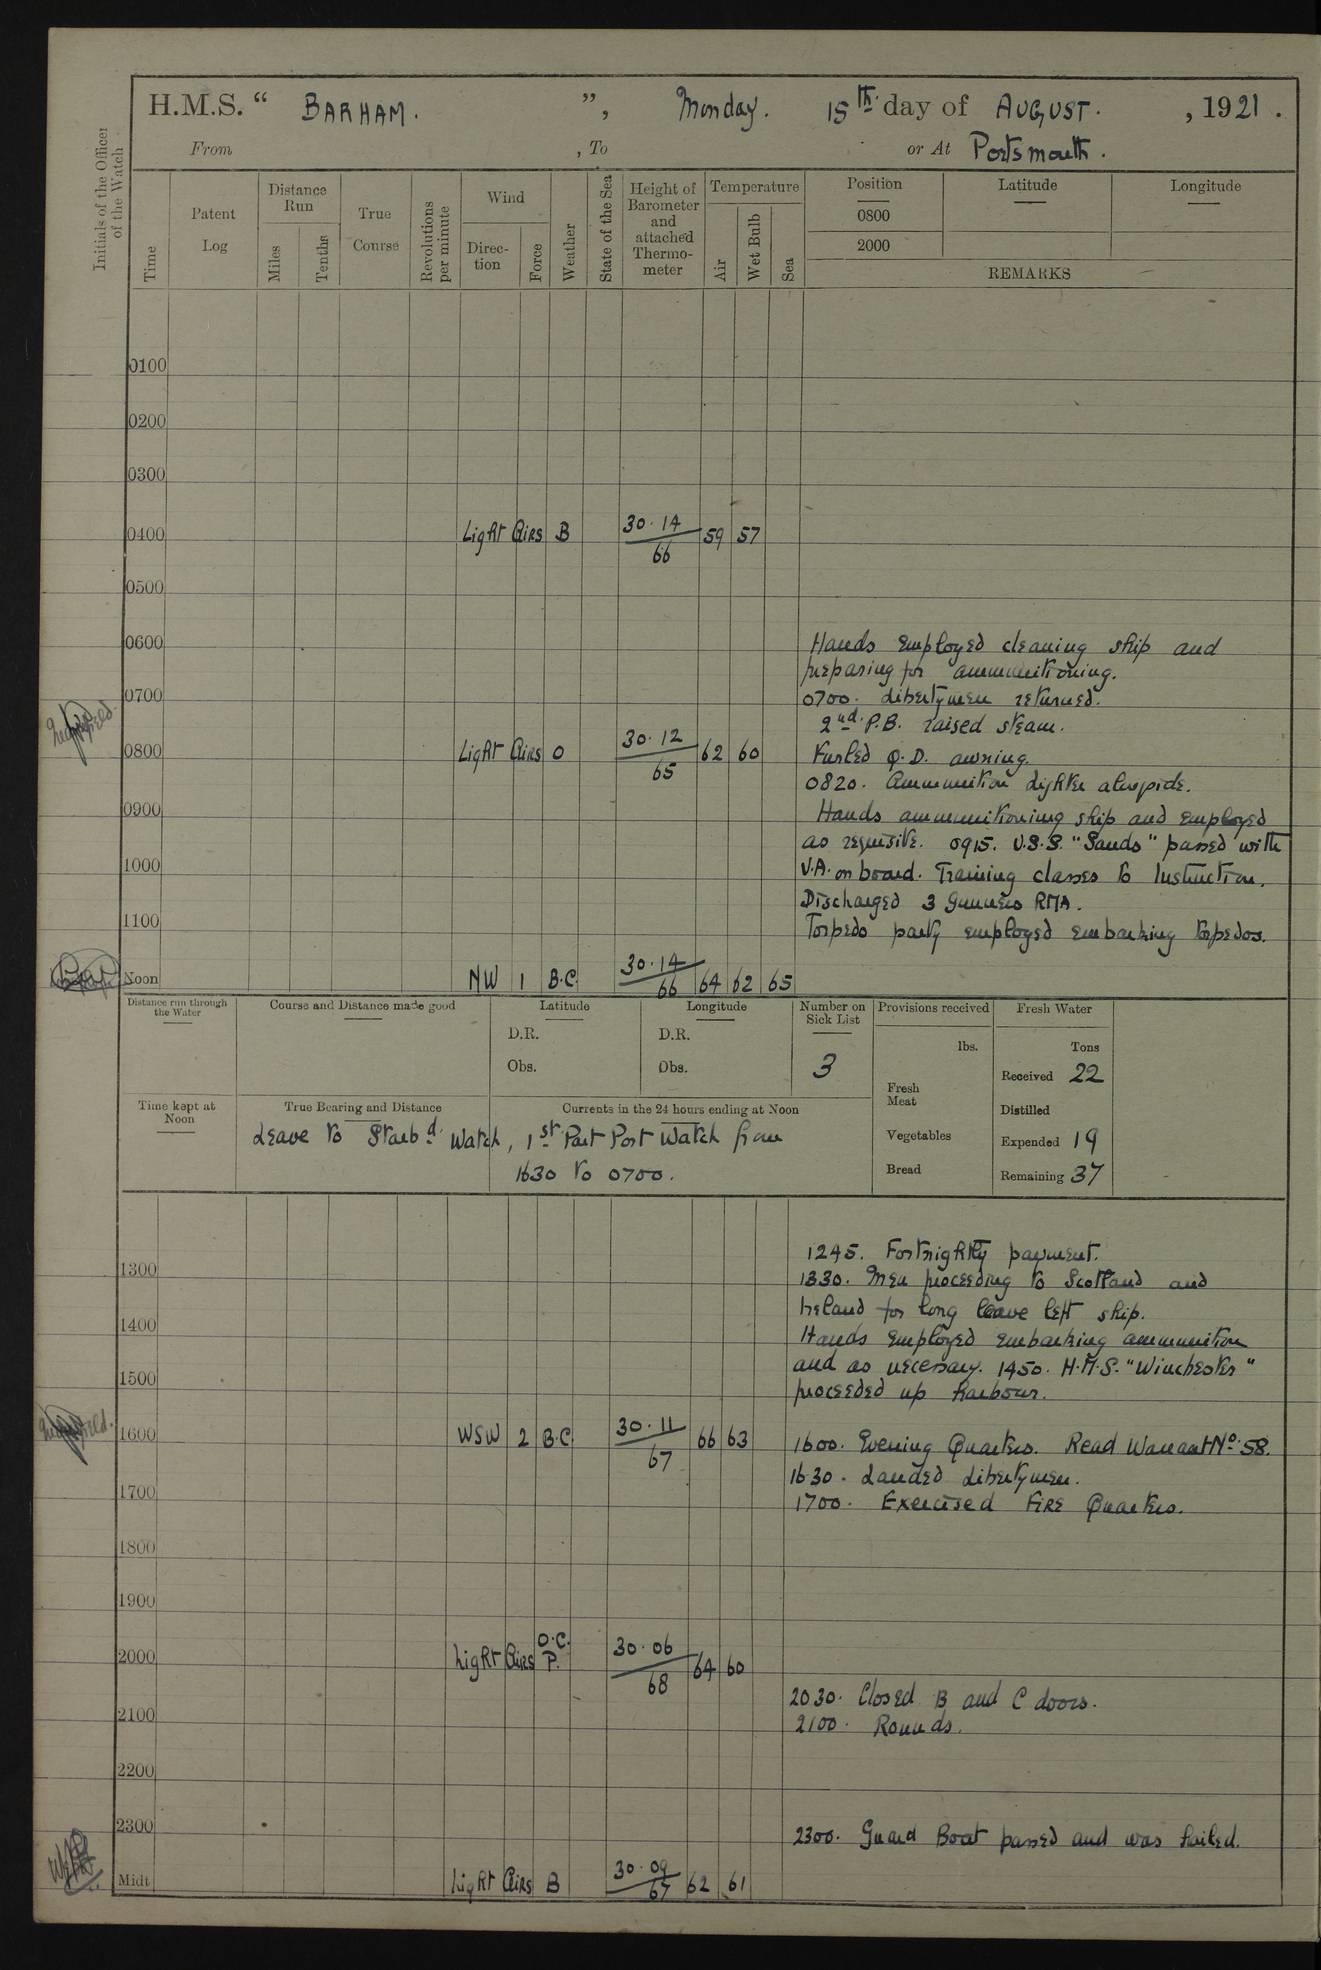 H.M.S. “ BARHAM. ”, Monday. 15th day of AUGUST. , 1921.
From , To or At Portsmouth.
Initials of the Officer of the Watch
Time
Patent Log
Distance Run
Miles
Tenths
True Course
Revolutions per minute
Wind
Direc-tion
Force
Weather
State of the Sea
Height of Barometer and attached Thermo-meter
Temperature
Air
Wet Bulb
Sea
Position
0800
2000
Latitude
Longitude
REMARKS
0100
0200
0300
0400 Light Airs B 30.14 66 59 57
0500
0600 Hands employed cleaning ship and
preparing for ammunitioning.
0700 0700. Libertymen returned.
2nd. P.B. raised steam.
0800 Light Airs O 30.12 65 62 60 Furled Q.D. awning.
0820. Ammunition Lighter alongside.
0900 Hands ammunitioning ship and employed
as requisite. 0915. U.S.S. "Sands" passed with
1000 V.A. on board. Training classes to Instruction.
Discharged 3 Gunners RMA.
1100 Torpedo party employed embarking torpedos.
Noon NW 1 B.C. 30.14 66 64 62 65
Distance run through the Water
Course and Distance made good
Latitude
D.R.
Obs.
Longitude
D.R.
Obs.
Number on Sick List
3
Provisions received
lbs.
Fresh Meat
Vegetables
Bread
Fresh Water
Tons
Received 22
Distilled
Expended 19
Remaining 37
Time kept at Noon
True Bearing and Distance
Currents in the 24 hours ending at Noon
Leave to Starbd. Watch, 1st. Part Port Watch from
1630 to 0700.
1245. Fortnightly payment.
1300 1330. Men proceeding to Scotland and
Ireland for long leave left ship.
1400 Hands employed embarking ammunition
and as necessary. 1450. H.M.S. "Winchester"
1500 proceeded up harbour.
1600 WSW 2 B.C. 30.11 67 66 63 1600. Evening Quarters. Read Warrant No. 58.
1630. Landed Libertymen.
1700 1700. Exercised FIRE Quarters.
1800
1900
2000 Light Airs O.C. P. 30.06 68 64 60
2030. Closed B and C doors.
2100 2100. Rounds.
2200
2300 2300. Guard Boat passed and was hailed.
Midt Light Airs B 30.09 67 62 61